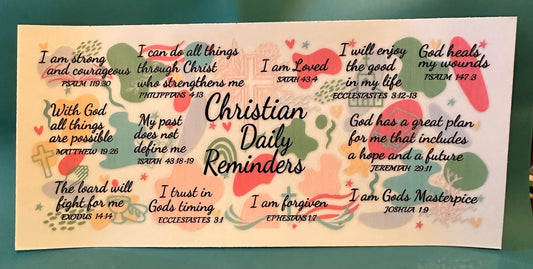 I am strong
and courageous
PSALM 119:30
I can do all things
through Christ
who strengthens me
PHILIPPIANS 4:13
I am Loved
SAIAH 43:4
I will enjoy
the good
in my life
ECCLESIASTES 3:12-13
God heals
my wounds
PSALM 147:3
With God
all things
are possible
MATTHEW 19:26
My past
does not
define me
ISAIAH 43:18-19
Christian
Daily
Reminders
God has a great plan
for me that includes
a hope and a future
JEREMIAH 29:11
The loard will
fight for me
EXODUS 14:14
I trust in
Gods timing
ECCLESIASTES 3:1
I am forgiven
EPHESIANS 1:7
I am Gods Masterpice
JOSHUA 1:9